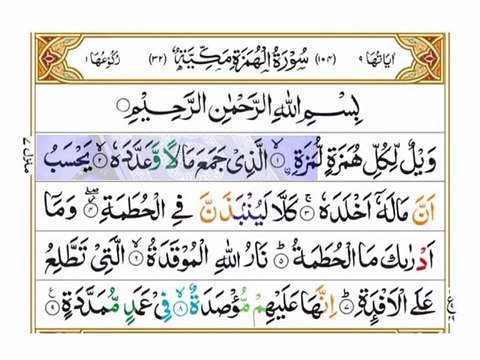 اٰيَاتُهَا ٩ (١٠٤) سُوْرَةُ الْهُمَزَةِ مَكِّيَّةٌ (٣٢) رُكُوْعُهَا ١
بِسْمِ اللهِ الرَّحْمٰنِ الرَّحِيْمِ
وَيْلٌ لِّكُلِّ هُمَزَةٍ لُّمَزَةِ ۙ﴿١﴾ الَّذِىْ جَمَعَ مَالًا وَّعَدَّدَهٗ ۙ﴿٢﴾ يَحْسَبُ
اَنَّ مَالَهٗۤ اَخْلَدَهٗ ۚ﴿٣﴾ كَلَّا لَيُنْۢبَذَنَّ فِى الْحُطَمَةِ ۖ﴿٤﴾ وَمَاۤ
اَدْرٰىكَ مَا الْحُطَمَةُ ؕ﴿٥﴾ نَارُ اللهِ الْمُوْقَدَةُ ۙ﴿٦﴾ الَّتِىْ تَطَّلِعُ
عَلَى الْاَفْـِٕدَةِ ؕ﴿٧﴾ اِنَّهَا عَلَيْهِمْ مُّؤْصَدَةٌ ۙ﴿٨﴾ فِىْ عَمَدٍ مُّمَدَّدَةٍ ﴿٩﴾